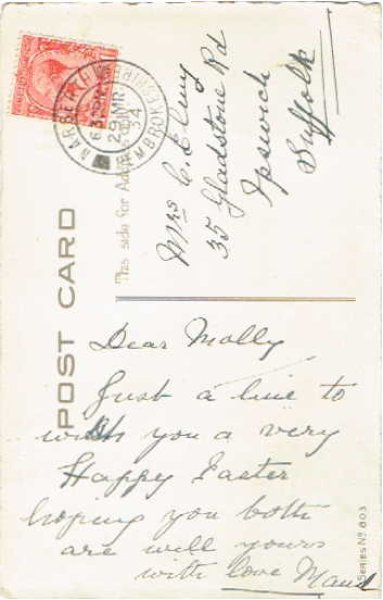 POST CARD
This side for Address
NARBERTH PEMBROKESHIRE
29 MR
34
Mrs C. Elvey
35 Gladstone Rd
Ipswich
Suffolk
Dear Molly
Just a line to
wish you a very
Happy Easter
hoping you both
are will yours
with love Maud
SERIES No 803